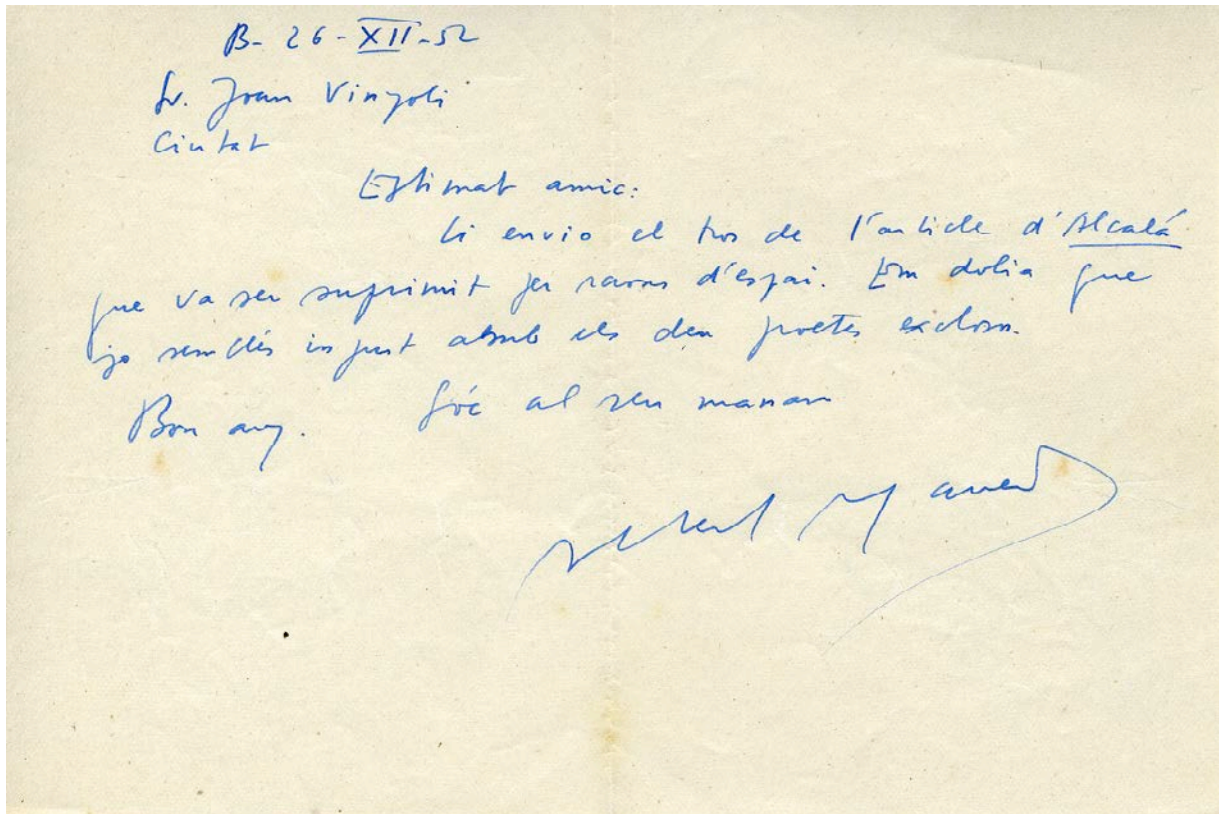 B- 26-XII-52
Sr. Joan Vinyoli
Ciutat
Estimat amic:
Li envio el tros de l'article d'Alcalá
que va ser suprimit per raons d'espai. Em dolia que
jo semblés injust amb els deu poetes exclosos.
Bon any. Sóc al seu manar
Albert Manent